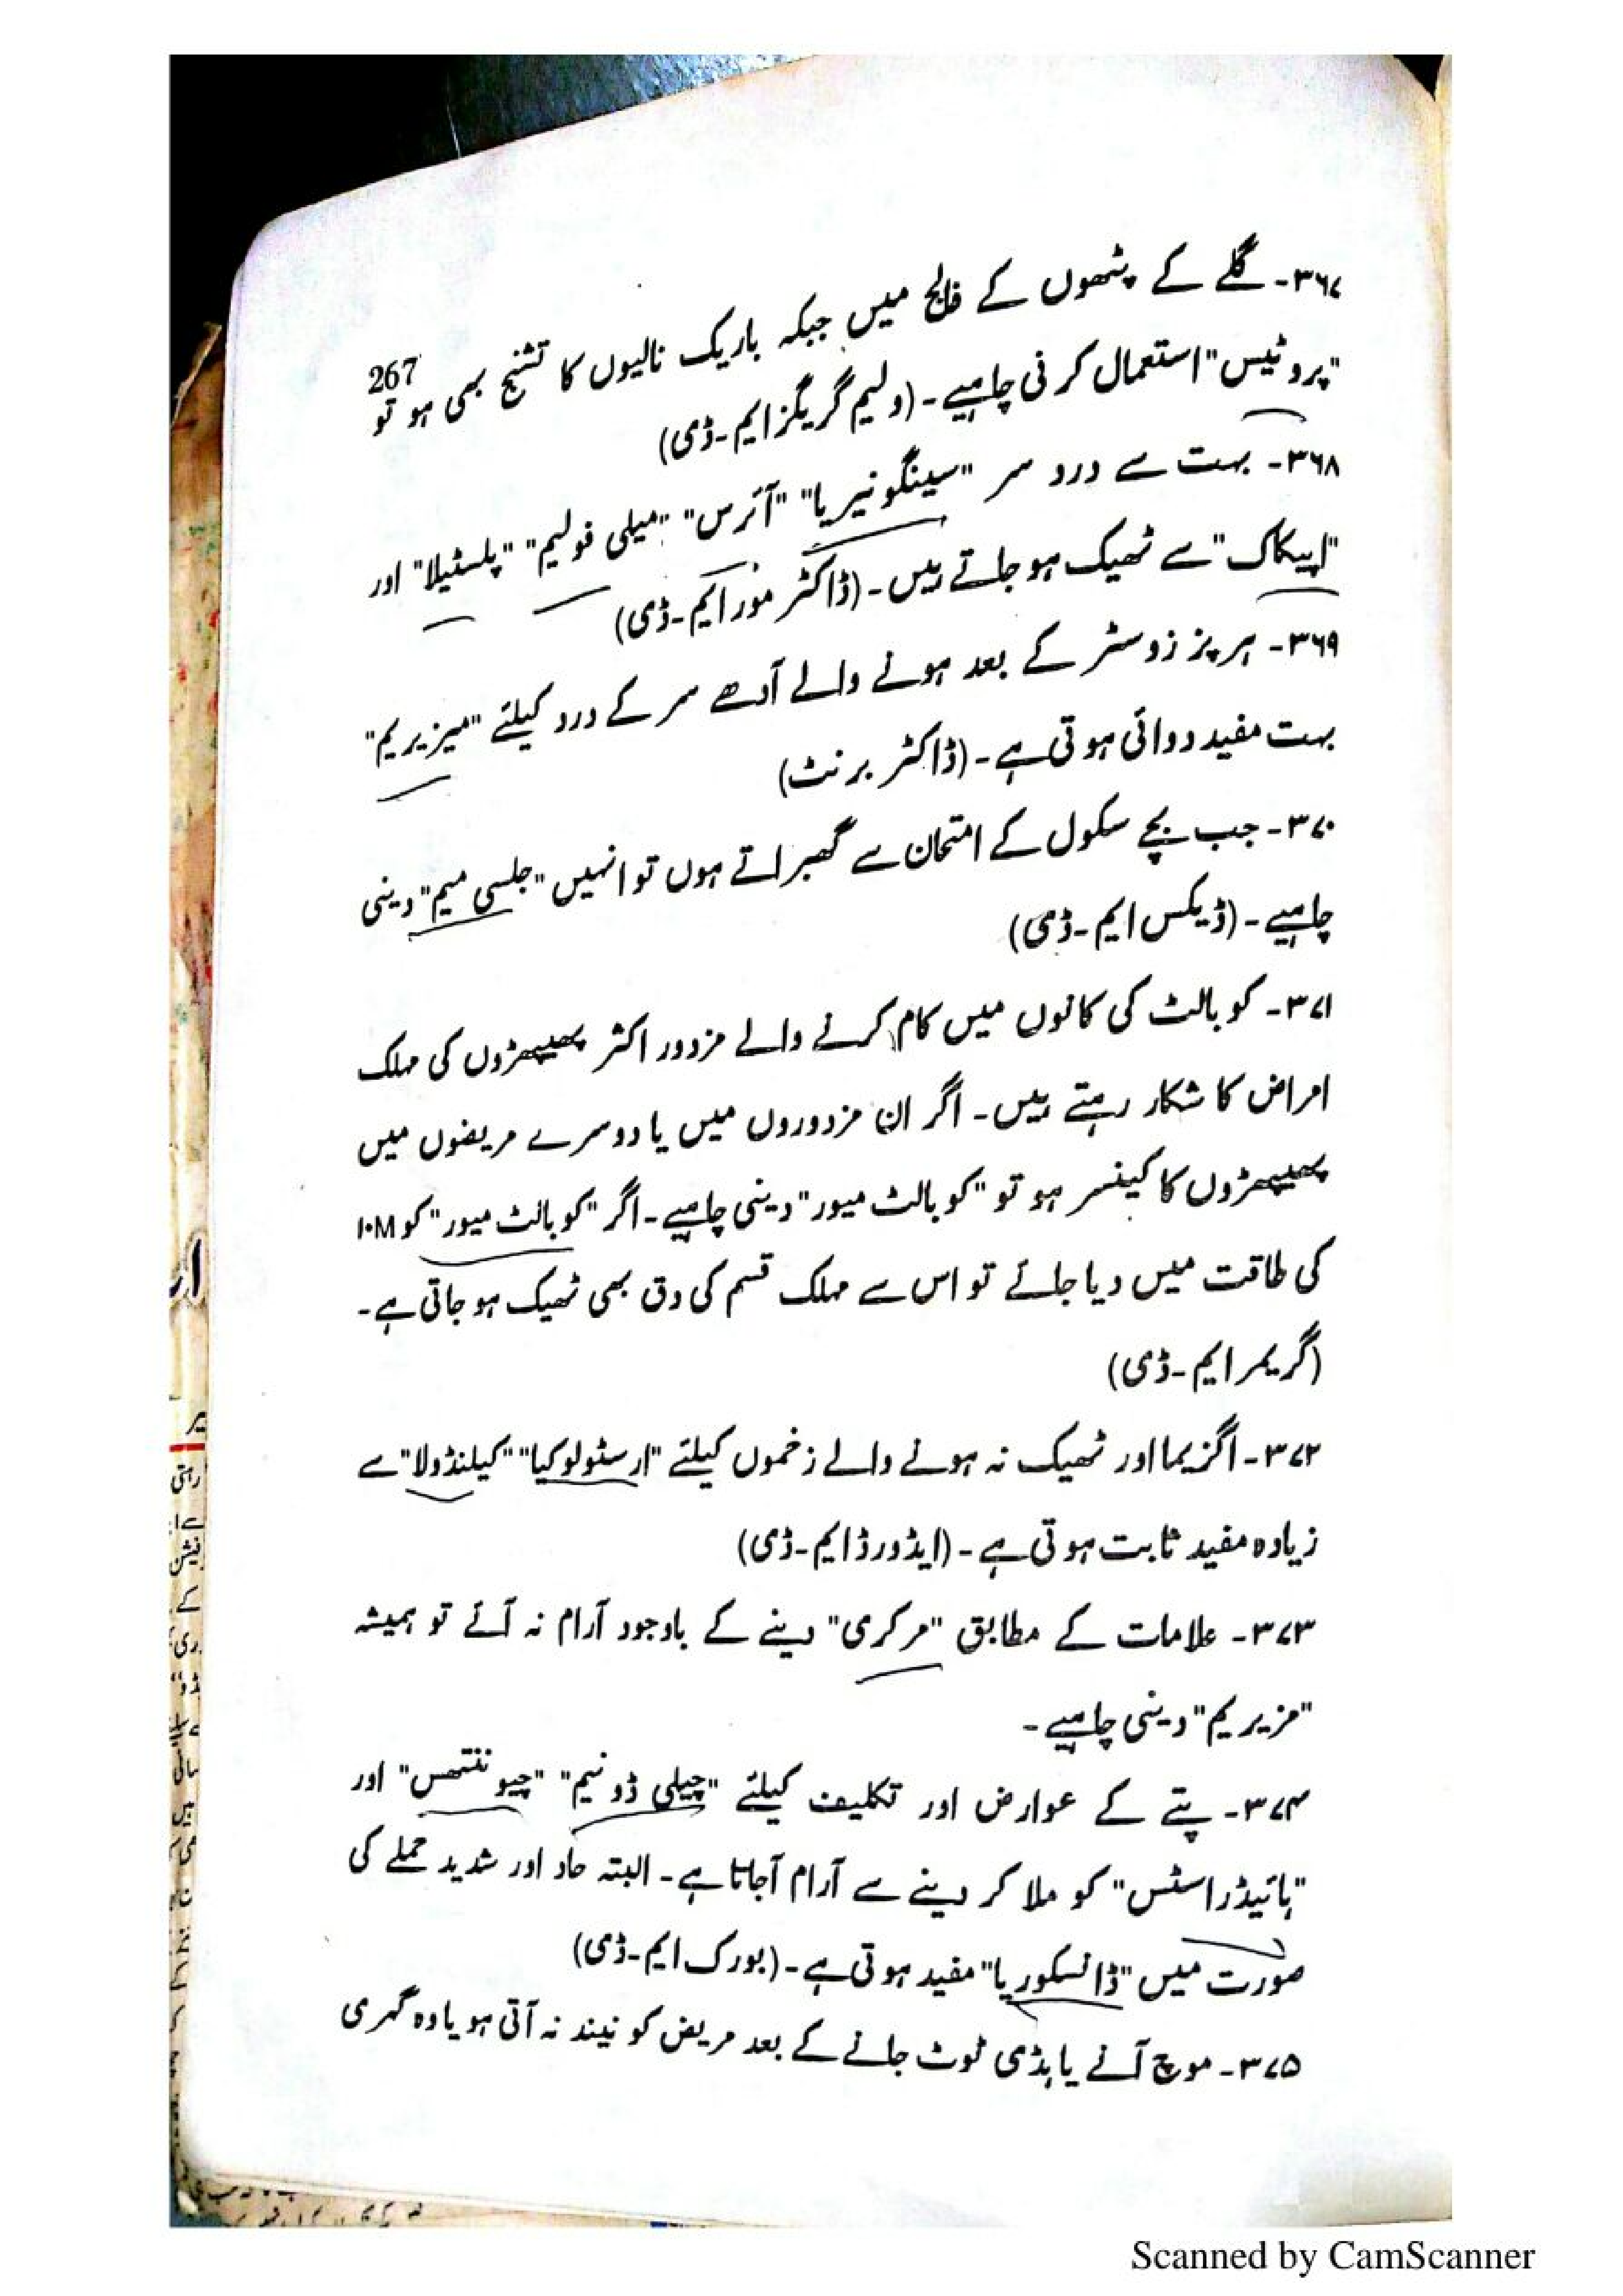 267
۳۶۷۔ گلے کے پٹھوں کے فالج میں جبکہ باریک نالیوں کا تشنج بھی ہو تو
"پروٹیس" استعمال کرنی چاہیے۔ (ولیم گریگز ایم۔ڈی)
۳۶۸۔ بہت سے درد سر "سینگونیریا" "آئرس" "میلی فولیم" "پلسٹیلا" اور
"اپیکاک" سے ٹھیک ہو جاتے ہیں۔ (ڈاکٹر مور ایم۔ڈی)
۳۶۹۔ ہرپز زوسٹر کے بعد ہونے والے آدھے سر کے درد کیلئے "میزیریم"
بہت مفید دوائی ہوتی ہے۔ (ڈاکٹر برنٹ)
۳۷۰۔ جب بچے سکول کے امتحان سے گھبراتے ہوں تو انہیں "جلسی میم" دینی
چاہیے۔ (ڈیکس ایم۔ڈی)
۳۷۱۔ کوبالٹ کی کانوں میں کام کرنے والے مزدور اکثر پھیپھڑوں کی مہلک
امراض کا شکار رہتے ہیں۔ اگر ان مزدوروں میں یا دوسرے مریضوں میں
پھیپھڑوں کا کینسر ہو تو "کوبالٹ میور" دینی چاہیے۔ اگر "کوبالٹ میور" کو ۱۰M
کی طاقت میں دیا جائے تو اس سے مہلک قسم کی دق بھی ٹھیک ہو جاتی ہے۔
(گریمر ایم۔ڈی)
۳۷۲۔ اگزیما اور ٹھیک نہ ہونے والے زخموں کیلئے "ارسٹولوکیا" "کیلنڈولا" سے
زیادہ مفید ثابت ہوتی ہے۔ (ایڈورڈ ایم۔ڈی)
۳۷۳۔ علامات کے مطابق "مرکری" دینے کے باوجود آرام نہ آئے تو ہمیشہ
"مزیریم" دینی چاہیے۔
۳۷۴۔ پتے کے عوارض اور تکلیف کیلئے "چیلی ڈونیم" "چیوننتھس" اور
"ہائیڈراسٹس" کو ملا کر دینے سے آرام آجاتا ہے۔ البتہ حاد اور شدید حملے کی
صورت میں "ڈائسکوریا" مفید ہوتی ہے۔ (بورک ایم۔ڈی)
۳۷۵۔ موچ آنے یا ہڈی ٹوٹ جانے کے بعد مریض کو نیند نہ آتی ہو یا وہ گہری
Scanned by CamScanner